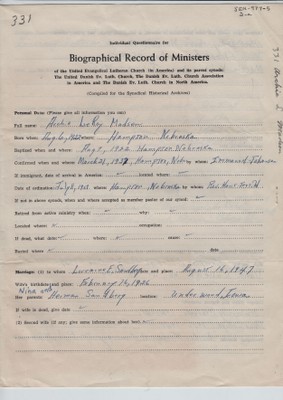 331
Individual Questionnaire for
Biographical Record of Ministers
of the United Evangelical Lutheran Church (in America) and its parent synods:
The United Danish Ev. Luth. Church, The Danish Ev. Luth. Church Association
in America and The Danish Ev. Luth. Church in North America.
(Compiled for the Synodical Historical Archives)
Personal Data: (Please give all information you can)
Full name: Madsen
Born when: Aug 6, 1922 where: Hampton, Nebraska
Baptized when and where: 1922 Hampton Nebraska
Confirmed when and where: March 21, 1937, Hampton, Nebr. whom: Immanuel
If immigrated, date of arrival in America: located where:
Date of ordination: 8, where: Hampton, Nebraska by whom: Rev. Hans
If not in above synods, when and where accepted as member pastor of our synod:
Retired from active ministry when: why:
Located where: occupation:
If dead, what date: where: cause:
Buried where: date
Marriage: (1) to whom Lorraine E. Sandberg and place: August 14, 1947
Wife's birthdate and place: February 14, 1926
Her parents: Herman Sandberg location: Underwood, Iowa
If wife is dead, give date
(2) Second wife (if any; give same information about her):